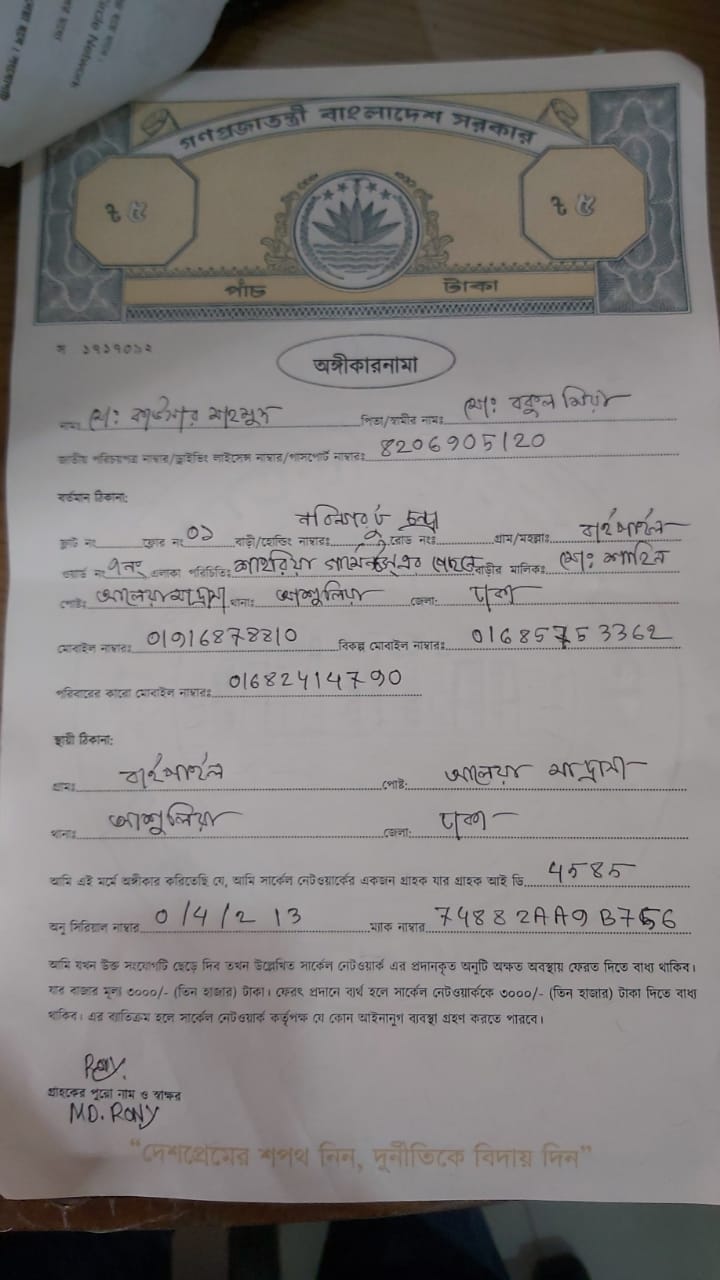 গণপ্রজাতন্ত্রী বাংলাদেশ সরকার
৳ ৫ ৳ ৫
পাঁচ টাকা
অঙ্গীকারনামা
নাম মোঃ পিতা/স্বামীর নামঃ মোঃ বকুল মিয়া
জাতীয় পরিচয়পত্র নাম্বার/ড্রাইভিং লাইসেন্স নাম্বার/পাসপোর্ট নাম্বারঃ 8206905120
বর্তমান ঠিকানা:
ফ্লাট নং ফ্লোর নং 01 বাড়ী/হোল্ডিং নাম্বারঃ রোড নংঃ গ্রাম/মহল্লাঃ
ওয়ার্ড নং ৭নং এলাকা পরিচিতিঃ বাড়ীর মালিকঃ মোঃ শাহিন
পোষ্টঃ থানাঃ আশুলিয়া জেলাঃ ঢাকা
মোবাইল নাম্বারঃ 01916878810 বিকল্প মোবাইল নাম্বারঃ 01685753362
পরিবারের কারো মোবাইল নাম্বারঃ 01682414790
স্থায়ী ঠিকানা:
গ্রামঃ পোষ্টঃ আলেয়া মাদ্রাসা
থানাঃ আশুলিয়া জেলাঃ ঢাকা
আমি এই মর্মে অঙ্গীকার করিতেছি যে, আমি সার্কেল নেটওয়ার্কের একজন গ্রাহক যার গ্রাহক আই ডি 4585
অনু সিরিয়াল নাম্বার 0/4/2 13 ম্যাক নাম্বার 74882AA9B756
আমি যখন উক্ত সংযোগটি ছেড়ে দিব তখন উল্লেখিত সার্কেল নেটওয়ার্ক এর প্রদানকৃত অনুটি অক্ষত অবস্থায় ফেরত দিতে বাধ্য থাকিব।
যার বাজার মূল্য ৩০০০/- (তিন হাজার) টাকা। ফেরৎ প্রদানে ব্যর্থ হলে সার্কেল নেটওয়ার্ককে ৩০০০/- (তিন হাজার) টাকা দিতে বাধ্য
থাকিব। এর ব্যতিক্রম হলে সার্কেল নেটওয়ার্ক কর্তৃপক্ষ যে কোন আইনানুগ ব্যবস্থা গ্রহণ করতে পারবে।
Rony.
গ্রাহকের পুরো নাম ও স্বাক্ষর
MD. RONY
“দেশপ্রেমের শপথ নিন, দুর্নীতিকে বিদায় দিন”